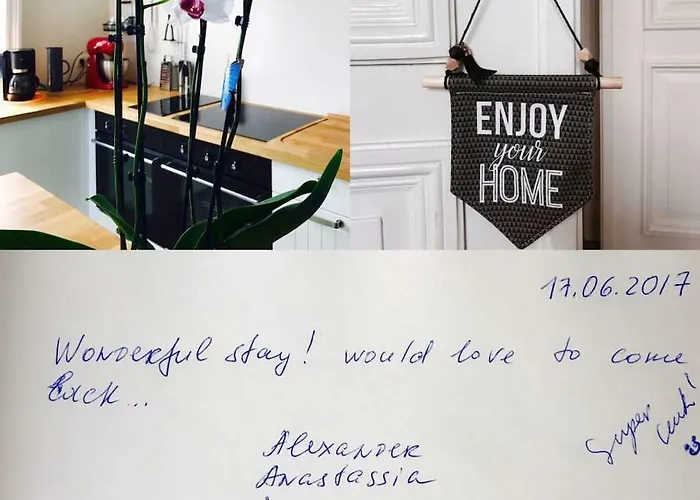 ENJOY
your
HOME
17.06.2017
Wonderful stay! would love to come
back...
Alexander
Anastassia
Super